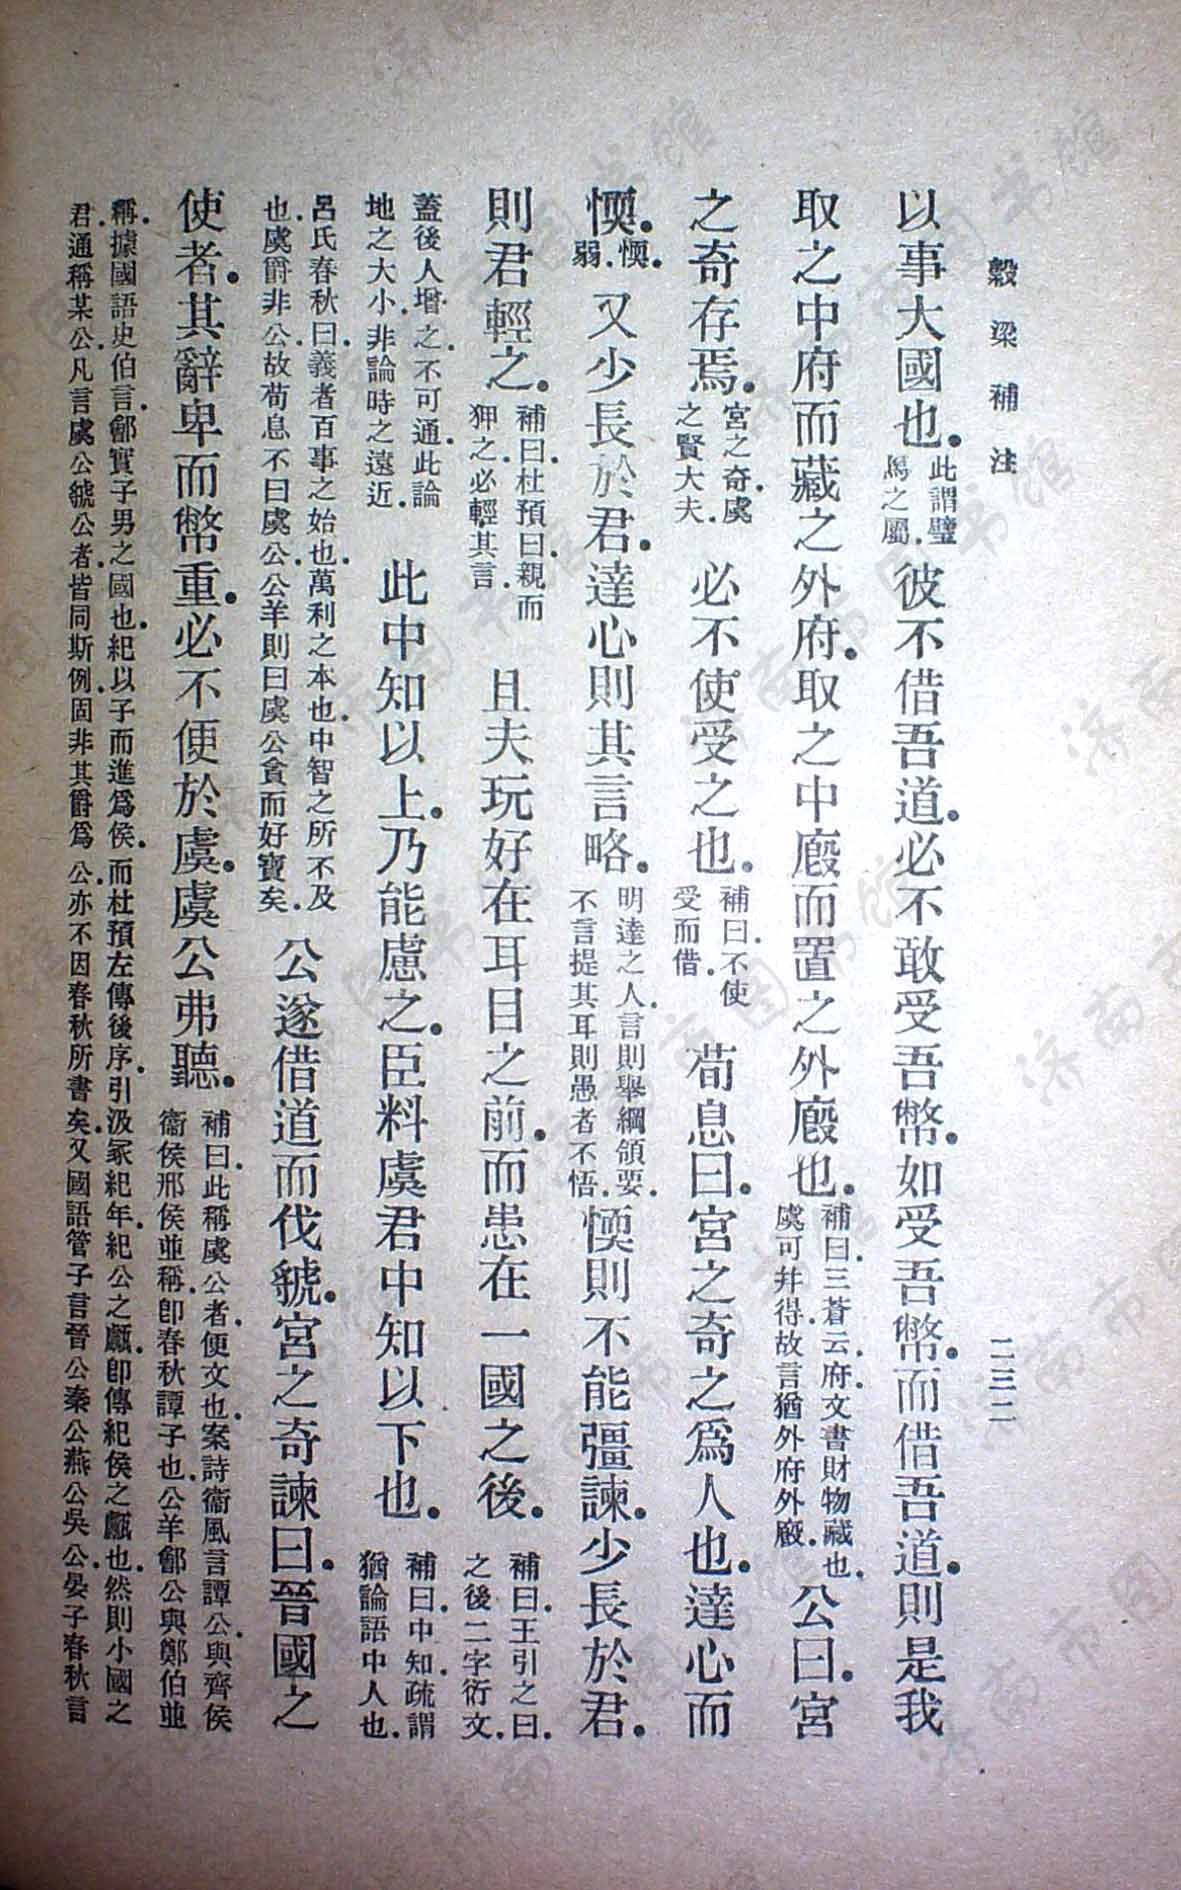 穀梁補注
二三二
以事大國也。此謂璧馬之屬。彼不借吾道。必不敢受吾幣。如受吾幣。而借吾道。則是我
取之中府而藏之外府。取之中廏而置之外廏也。補曰。三蒼云。府。文書財物藏也。虞可幷得。故言猶外府外廏。公曰。宮
之奇存焉。宮之奇。虞之賢大夫。必不使受之也。補曰。不使受而借。荀息曰。宮之奇之爲人也。達心而
懦。懦。弱。又少長於君。達心則其言略。明達之人。言則舉綱領要。不言提其耳。則愚者不悟。懦則不能彊諫。少長於君。
則君輕之。補曰。杜預曰。親而狎之。必輕其言。且夫玩好在耳目之前。而患在一國之後。補曰。王引之曰。之後二字衍文。
蓋後人增之。不可通。此論地之大小。非論時之遠近。此中知以上。乃能慮之。臣料虞君中知以下也。補曰。中知。疏謂猶論語中人也。
呂氏春秋曰。義者百事之始也。萬利之本也。中智之所不及也。虞爵非公。故荀息不曰虞公。公羊則曰虞公貪而好寶矣。公遂借道而伐虢。宮之奇諫曰。晉國之
使者。其辭卑而幣重。必不便於虞。虞公弗聽。補曰。此稱虞公者。便文也。案詩衞風言譚公。與齊侯衞侯邢侯並稱。卽春秋譚子也。公羊鄶公與鄭伯並
稱。據國語史伯言。鄶實子男之國也。紀以子而進爲侯。而杜預左傳後序。引汲冢紀年。紀公之甗。卽傳紀侯之甗也。然則小國之
君。通稱某公。凡言虞公虢公者。皆同斯例。固非其爵爲公。亦不因春秋所書矣。又國語管子言晉公秦公燕公吳公。晏子春秋言